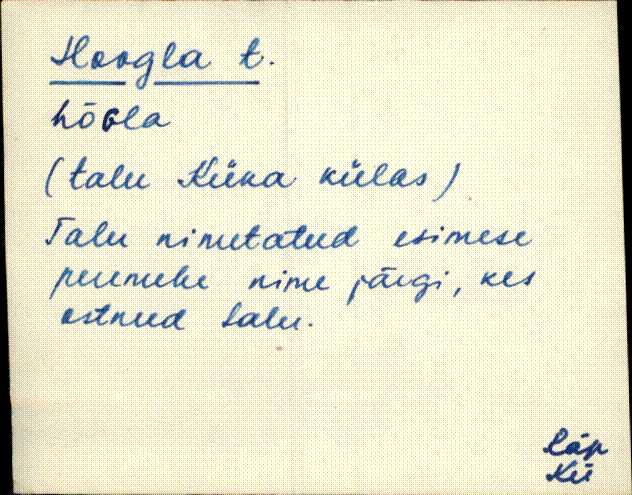 Hoogla t.
hōGla
(talu Küka külas)
Talu nimetatud esimese
peremehe nime järgi, kes
ostnud talu.
Räp
Kü